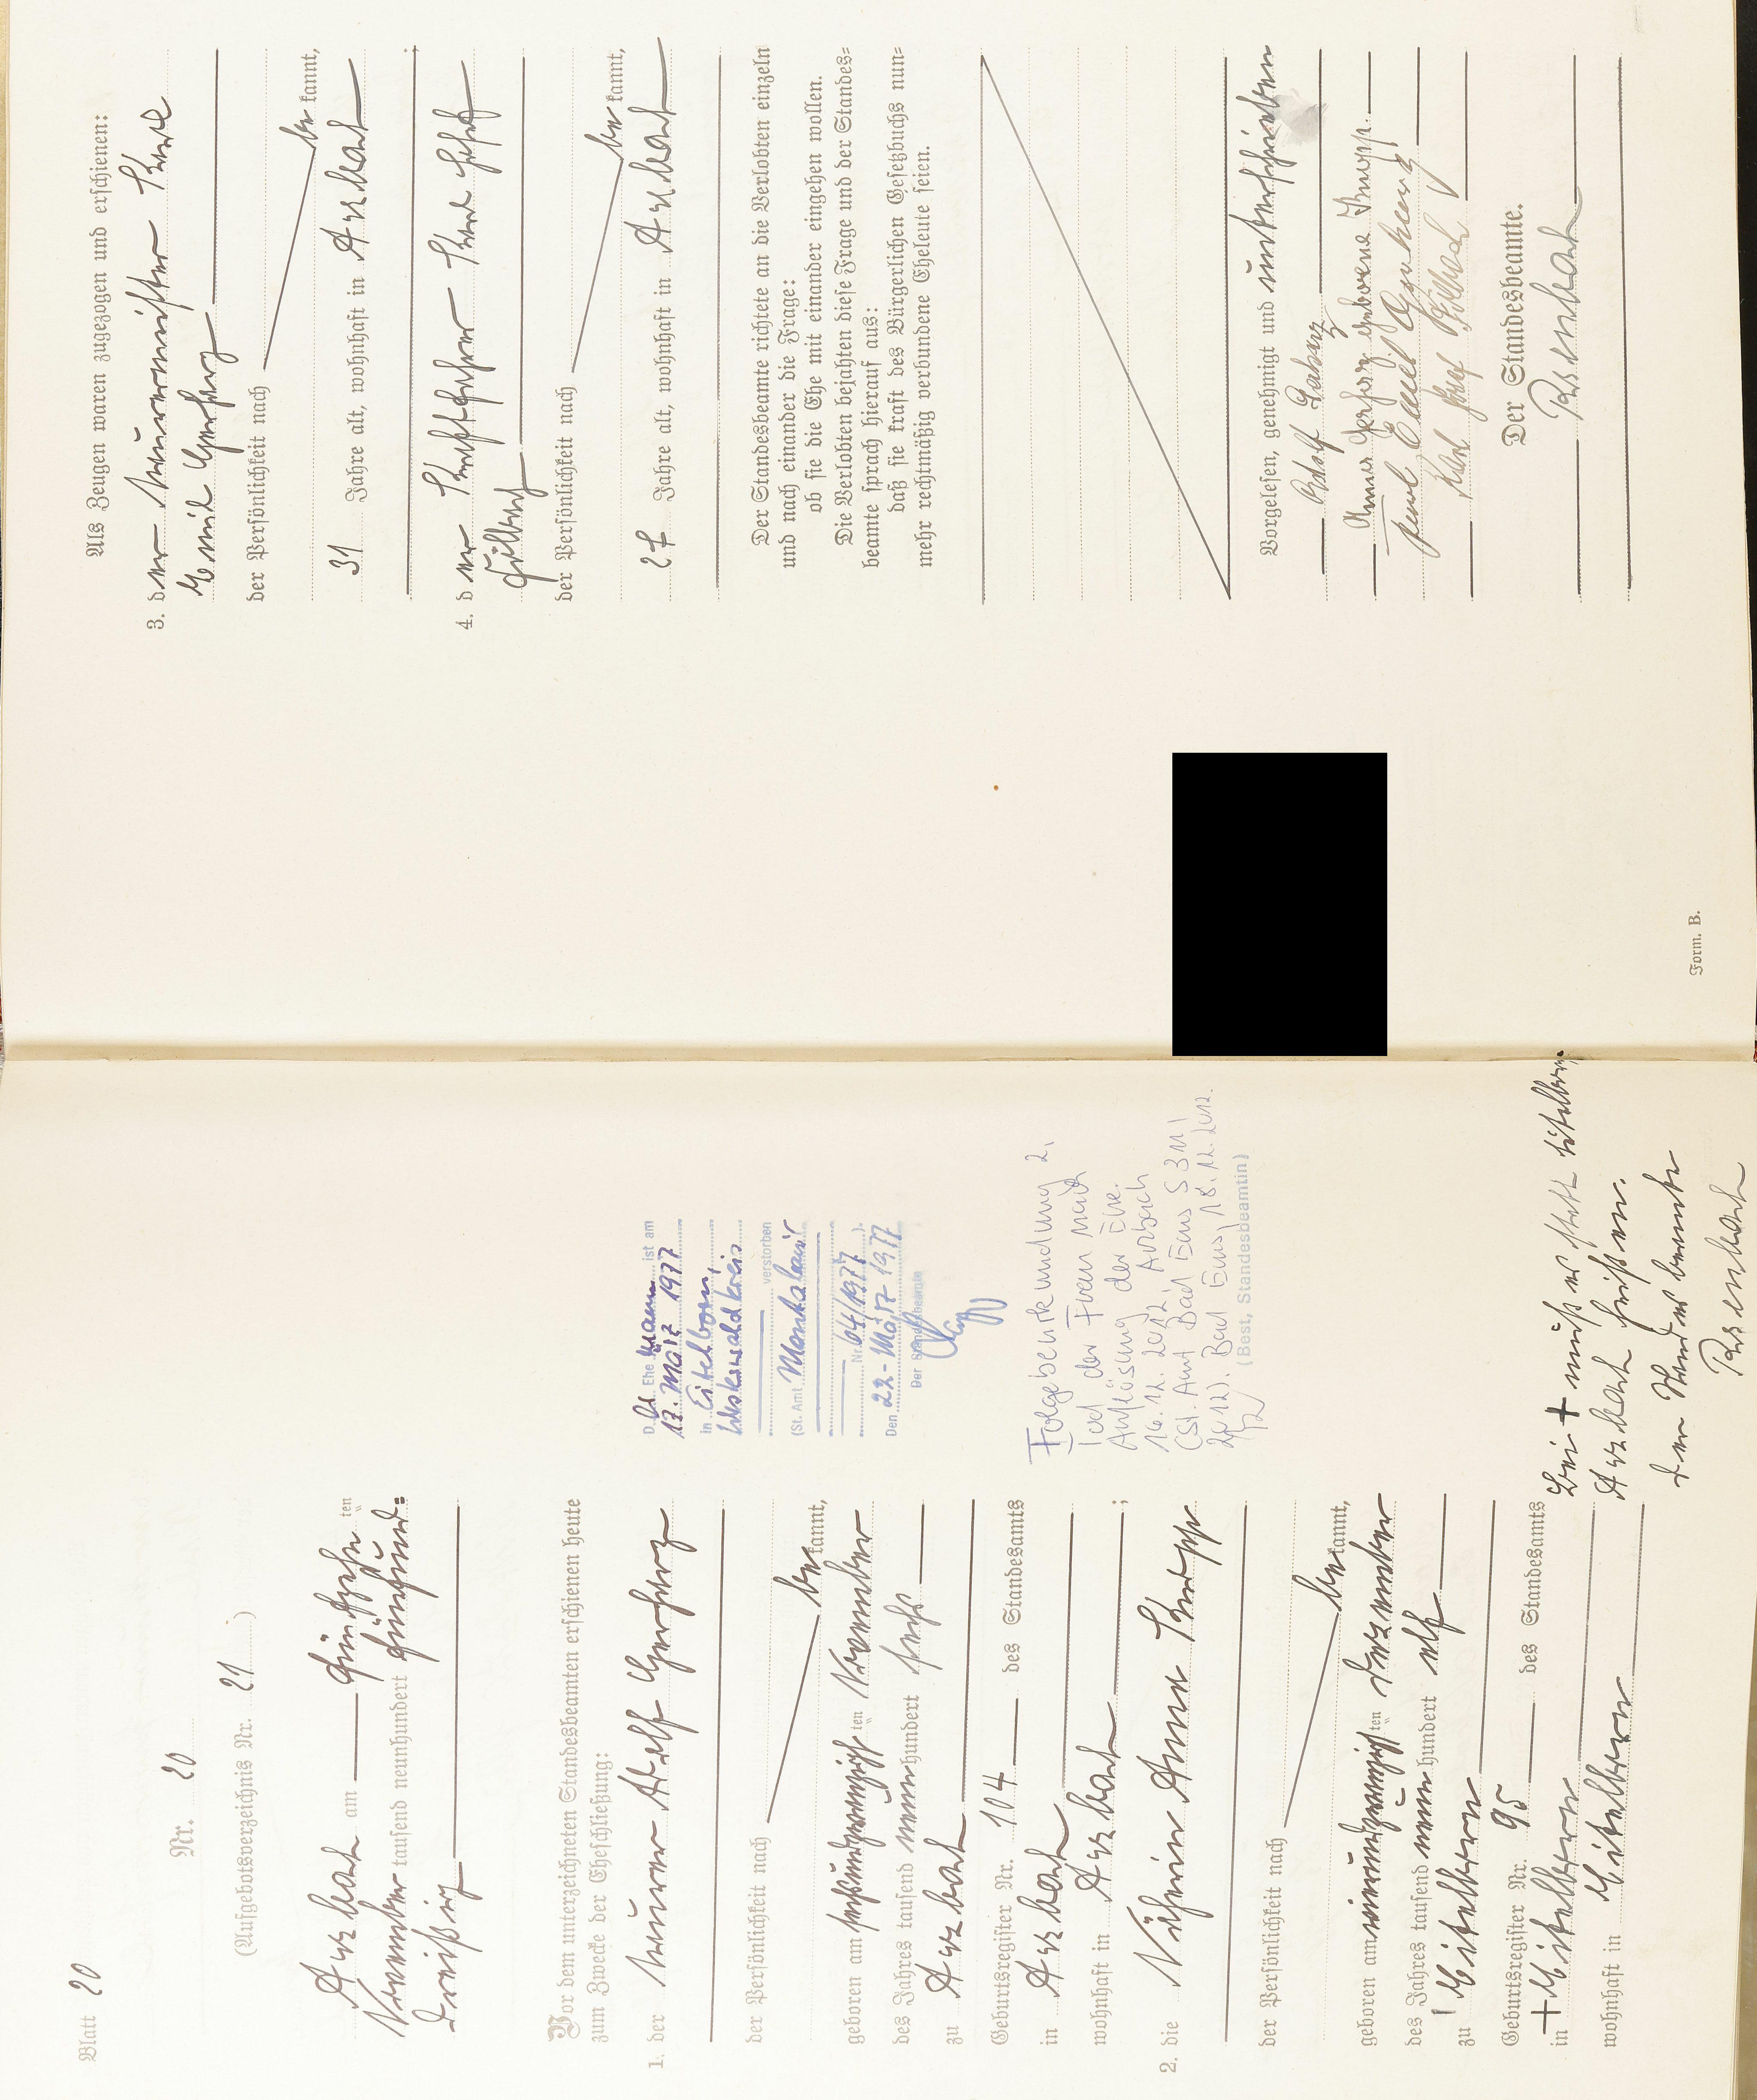 Blatt 20
Nr. 20
(Aufgebotsverzeichnis Nr. 21)
Arzbach am fünfzehn ten
November tausend neunhundert fünfund=
dreißig
Vor dem unterzeichneten Standesbeamten erschienen heute
zum Zwecke der Eheschließung:
1. der Maurer Adolf Gerharz
der Persönlichkeit nach
be kannt,
geboren am sechsundzwanzigsten November
des Jahres tausend neunhundert sechs
zu Arzbach
Geburtsregister Nr. 104 des Standesamts
in Arzbach
wohnhaft in Arzbach ;
2. die Näherin Anna Knopp
der Persönlichkeit nach
be kannt,
geboren am neunundzwanzigsten Dezember
des Jahres tausend neunhundert elf
zu Eitelborn
Geburtsregister Nr. 95 des Standesamts
in + Eitelborn
wohnhaft in Eitelborn
D er Ehe mann ist am
17. März 1977
in Eitelborn,
Westerwaldkreis
verstorben
(St. Amt Montabaur
Nr. 64/1977 ).
Den 22. März 1977
Der Standesbeamte
Folgebeurkundung 2.
Tod der Frau nach
Auflösung der Ehe.
16.12.2012, Arzbach
(St. Amt Bad Ems S 311/
2012). Bad Ems, 18.12.2012.
(Best, Standesbeamtin)
Bei + muß es statt Eitelborn
Arzbach heißen.
Der Standesbeamte
Form. B.
Als Zeugen waren zugezogen und erschienen:
3. der Maurermeister Karl
Emil Gerharz
der Persönlichkeit nach
be kannt,
31 Jahre alt, wohnhaft in Arzbach
;
4. der Kraftfahrer Karl Josef
der Persönlichkeit nach
be kannt,
27 Jahre alt, wohnhaft in Arzbach
Der Standesbeamte richtete an die Verlobten einzeln
und nach einander die Frage:
ob sie die Ehe mit einander eingehen wollen.
Die Verlobten bejahten diese Frage und der Standes=
beamte sprach hierauf aus:
daß sie kraft des Bürgerlichen Gesetzbuchs nun=
mehr rechtmäßig verbundene Eheleute seien.
Vorgelesen, genehmigt und unterschrieben
Adolf Gerharz
Anna Gerharz geborene Knopp.
Karl Emil Gerharz
Karl Josef
Der Standesbeamte.